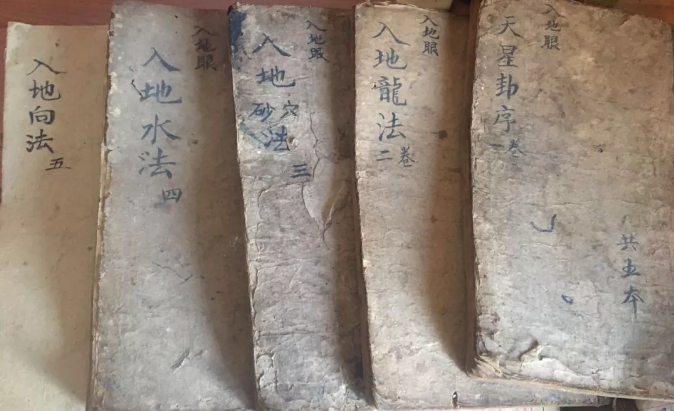 入地眼
天星卦序
一卷
共五本
入地眼
入地龍法
二卷
入地眼
入地砂穴法
三
入地眼
入地水法
四
入地向法
五